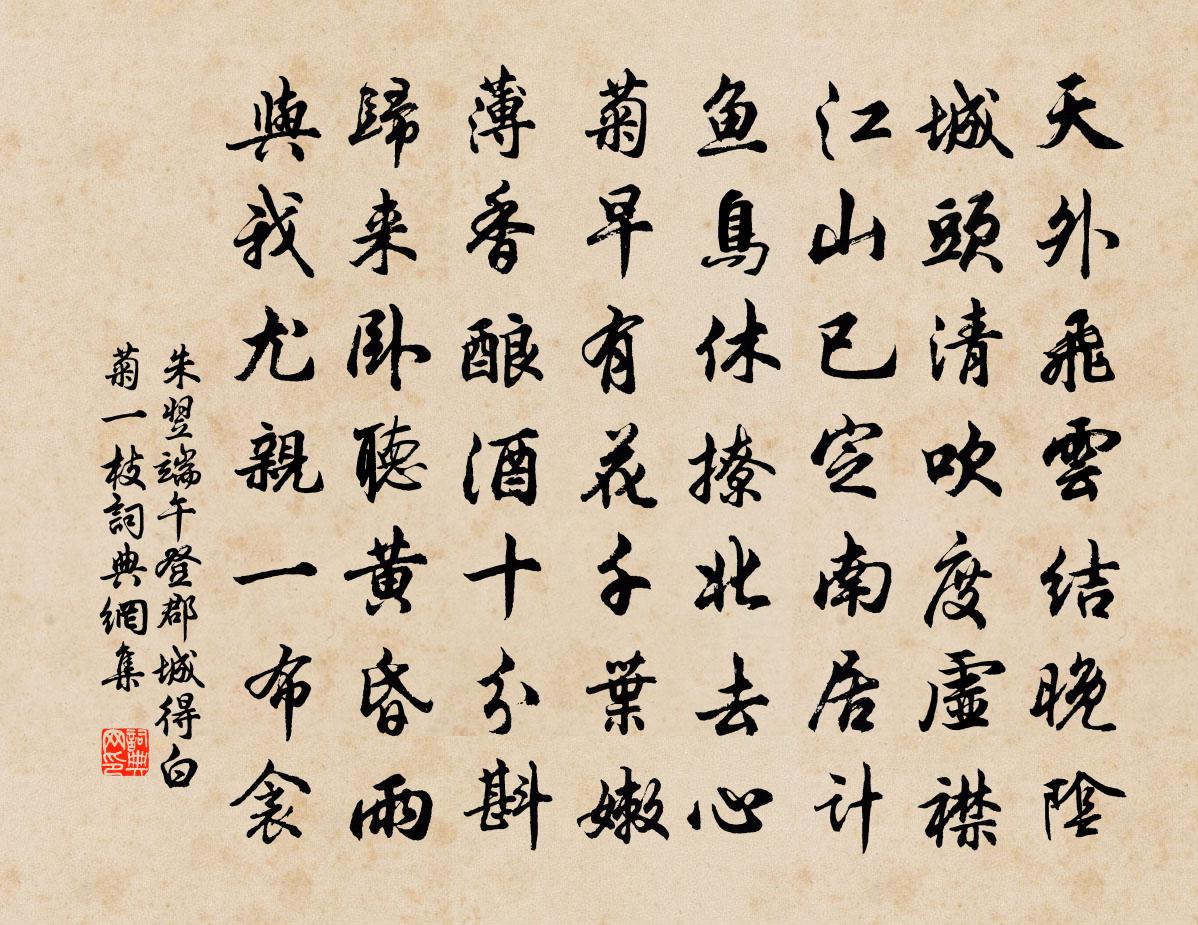 天外飛雲結晚陰
城頭清吹度虛襟
江山已定南居計
魚鳥休撩北去心
菊早有花千葉嫩
薄香酿酒十分斟
歸来卧聽黄昏雨
與我尤親一布衾
朱翌端午登郡城得白
菊一枝詞典網集
詞典
网印